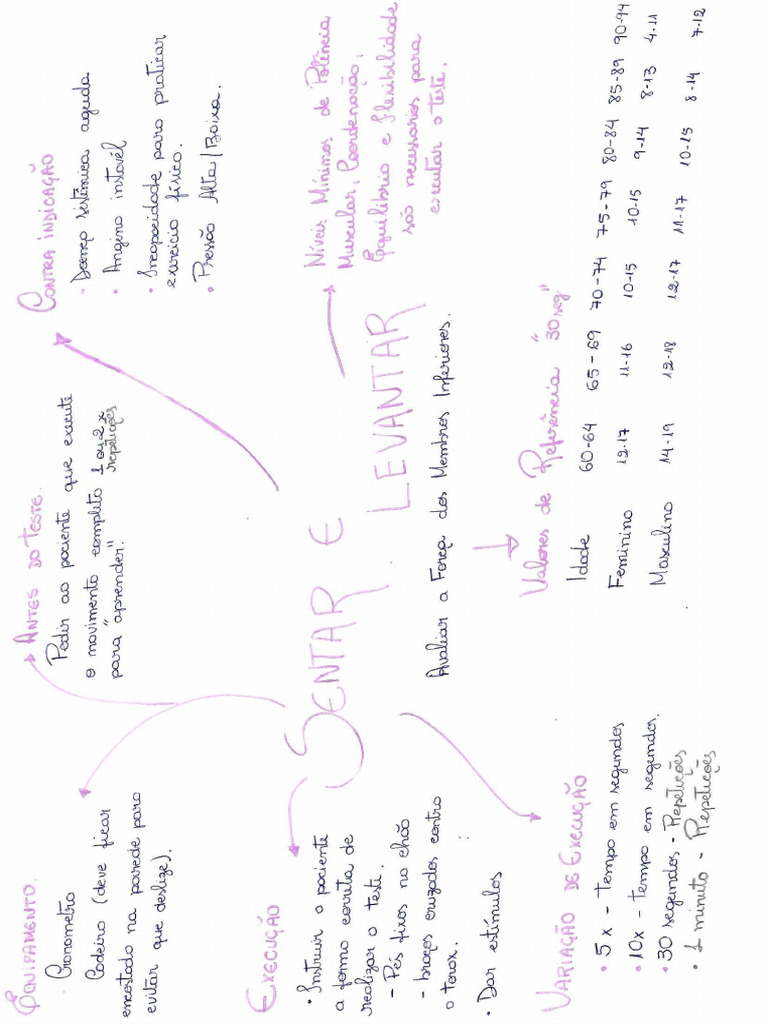 EQUIPAMENTO.
Cronometro
Cadeira (deve ficar
encostado na parede para
evitar que deslize).
ANTES DO TESTE.
Pedir ao paciente que execute
o movimento completo 1 ou 2x
repetições
para "aprender"
CONTRA INDICAÇÃO
• Doença sistêmica aguda
• Angina instavél
• Incapacidade para praticar
exercício físico.
• Pressão Alta/Baixa.
SENTAR E
LEVANTAR
Avaliar a Força dos Membros Inferiores.
Níveis Mínimos de Potência
Muscular, Coordenação,
Equilibrio e Flexibilidade
são necessarios para
executar o teste.
EXECUÇÃO
• Instruir o paciente
a forma correta de
realizar o teste.
- Pés fixos no chão
- braços cruzados contra
o torax.
• Dar estímulos
VARIAÇÃO DE EXECUÇÃO
• 5x - Tempo em segundos
• 10x - tempo em segundos.
• 30 segundos - Repetições
• 1 minuto - Repetições
Valores de Referência "30 seg"
Idade 60-64 65-69 70-74 75-79 80-84 85-89 90-94
Feminino 12-17 11-16 10-15 10-15 9-14 8-13 4-11
Masculino 14-19 12-18 12-17 11-17 10-15 8-14 7-12